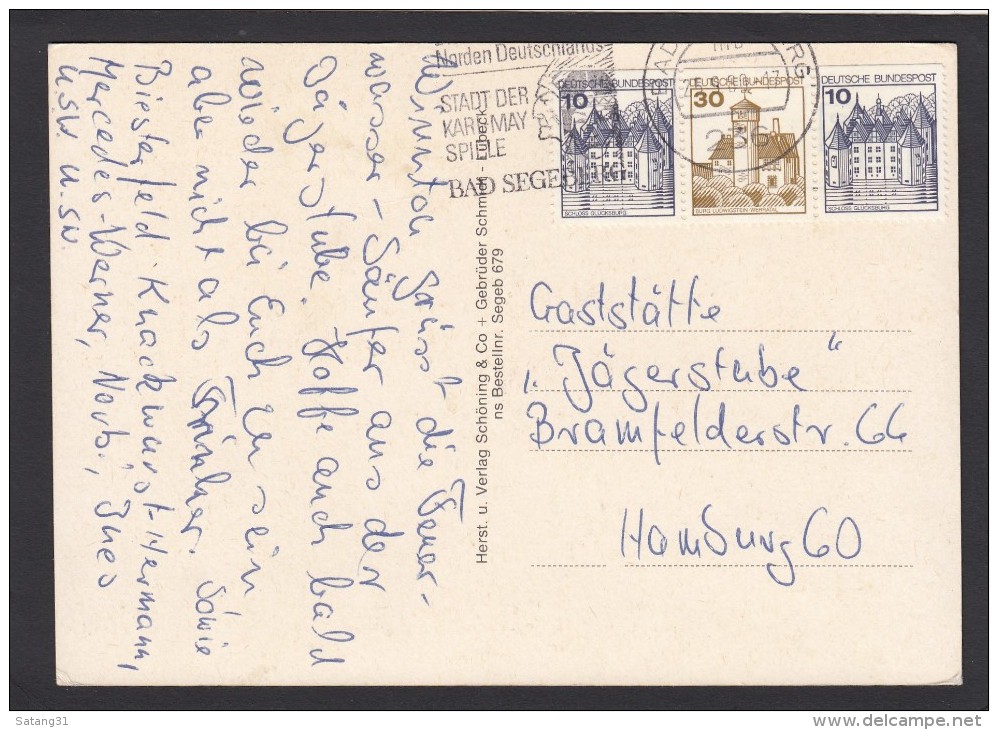 Winnetou grüsst die Feuer-
wasser-Säufer aus der
Jägerstube. Hoffe auch bald
wieder bei Euch zu sein
aber nicht als Trinker. Sowie
Biesterfeld. Knackwurst-Hermann,
Mercedes-Werner, Norb., Ines
u.s.w. u.s.w.
Herst. u. Verlag Schöning & Co + Gebrüder Schmidt - Lübeck
ns Bestellnr. Segeb 679
Norden Deutschlands
STADT DER
KARL MAY
SPIELE
BAD SEGE
236
DEUTSCHE BUNDESPOST
10
SCHLOSS GLÜCKSBURG
DEUTSCHE BUNDESPOST
30
BURG LUDWIGSTEIN-WERRATAL
DEUTSCHE BUNDESPOST
10
SCHLOSS GLÜCKSBURG
Gaststätte
„Jägerstube"
Bramfelderstr. 66
Hamburg 60
Satang31
www.delcampe.net